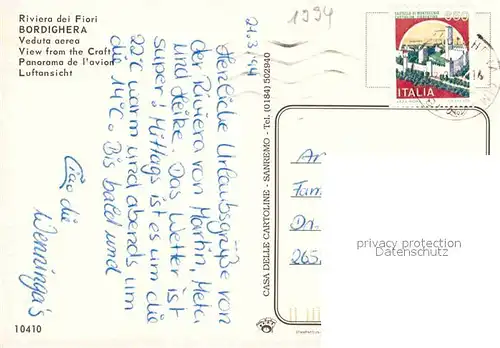 Riviera dei Fiori
BORDIGHERA
Veduta aerea
View from the Craft
Panorama de l'avion
Luftansicht
1994
21.3.94
Herzliche Urlaubsgrüße von
der Riviera von Martin, Meta
und Heike. Das Wetter ist
super! Mittags ist es um die
22°C warm und abends um
die 14°C. Bis bald und
Ciao die
Wenninga's
CASA DELLE CARTOLINE - SANREMO - Tel. (0184) 502940
650
ITALIA
An
Fam
Dr.
265
privacy protection
oldthing.de
10410